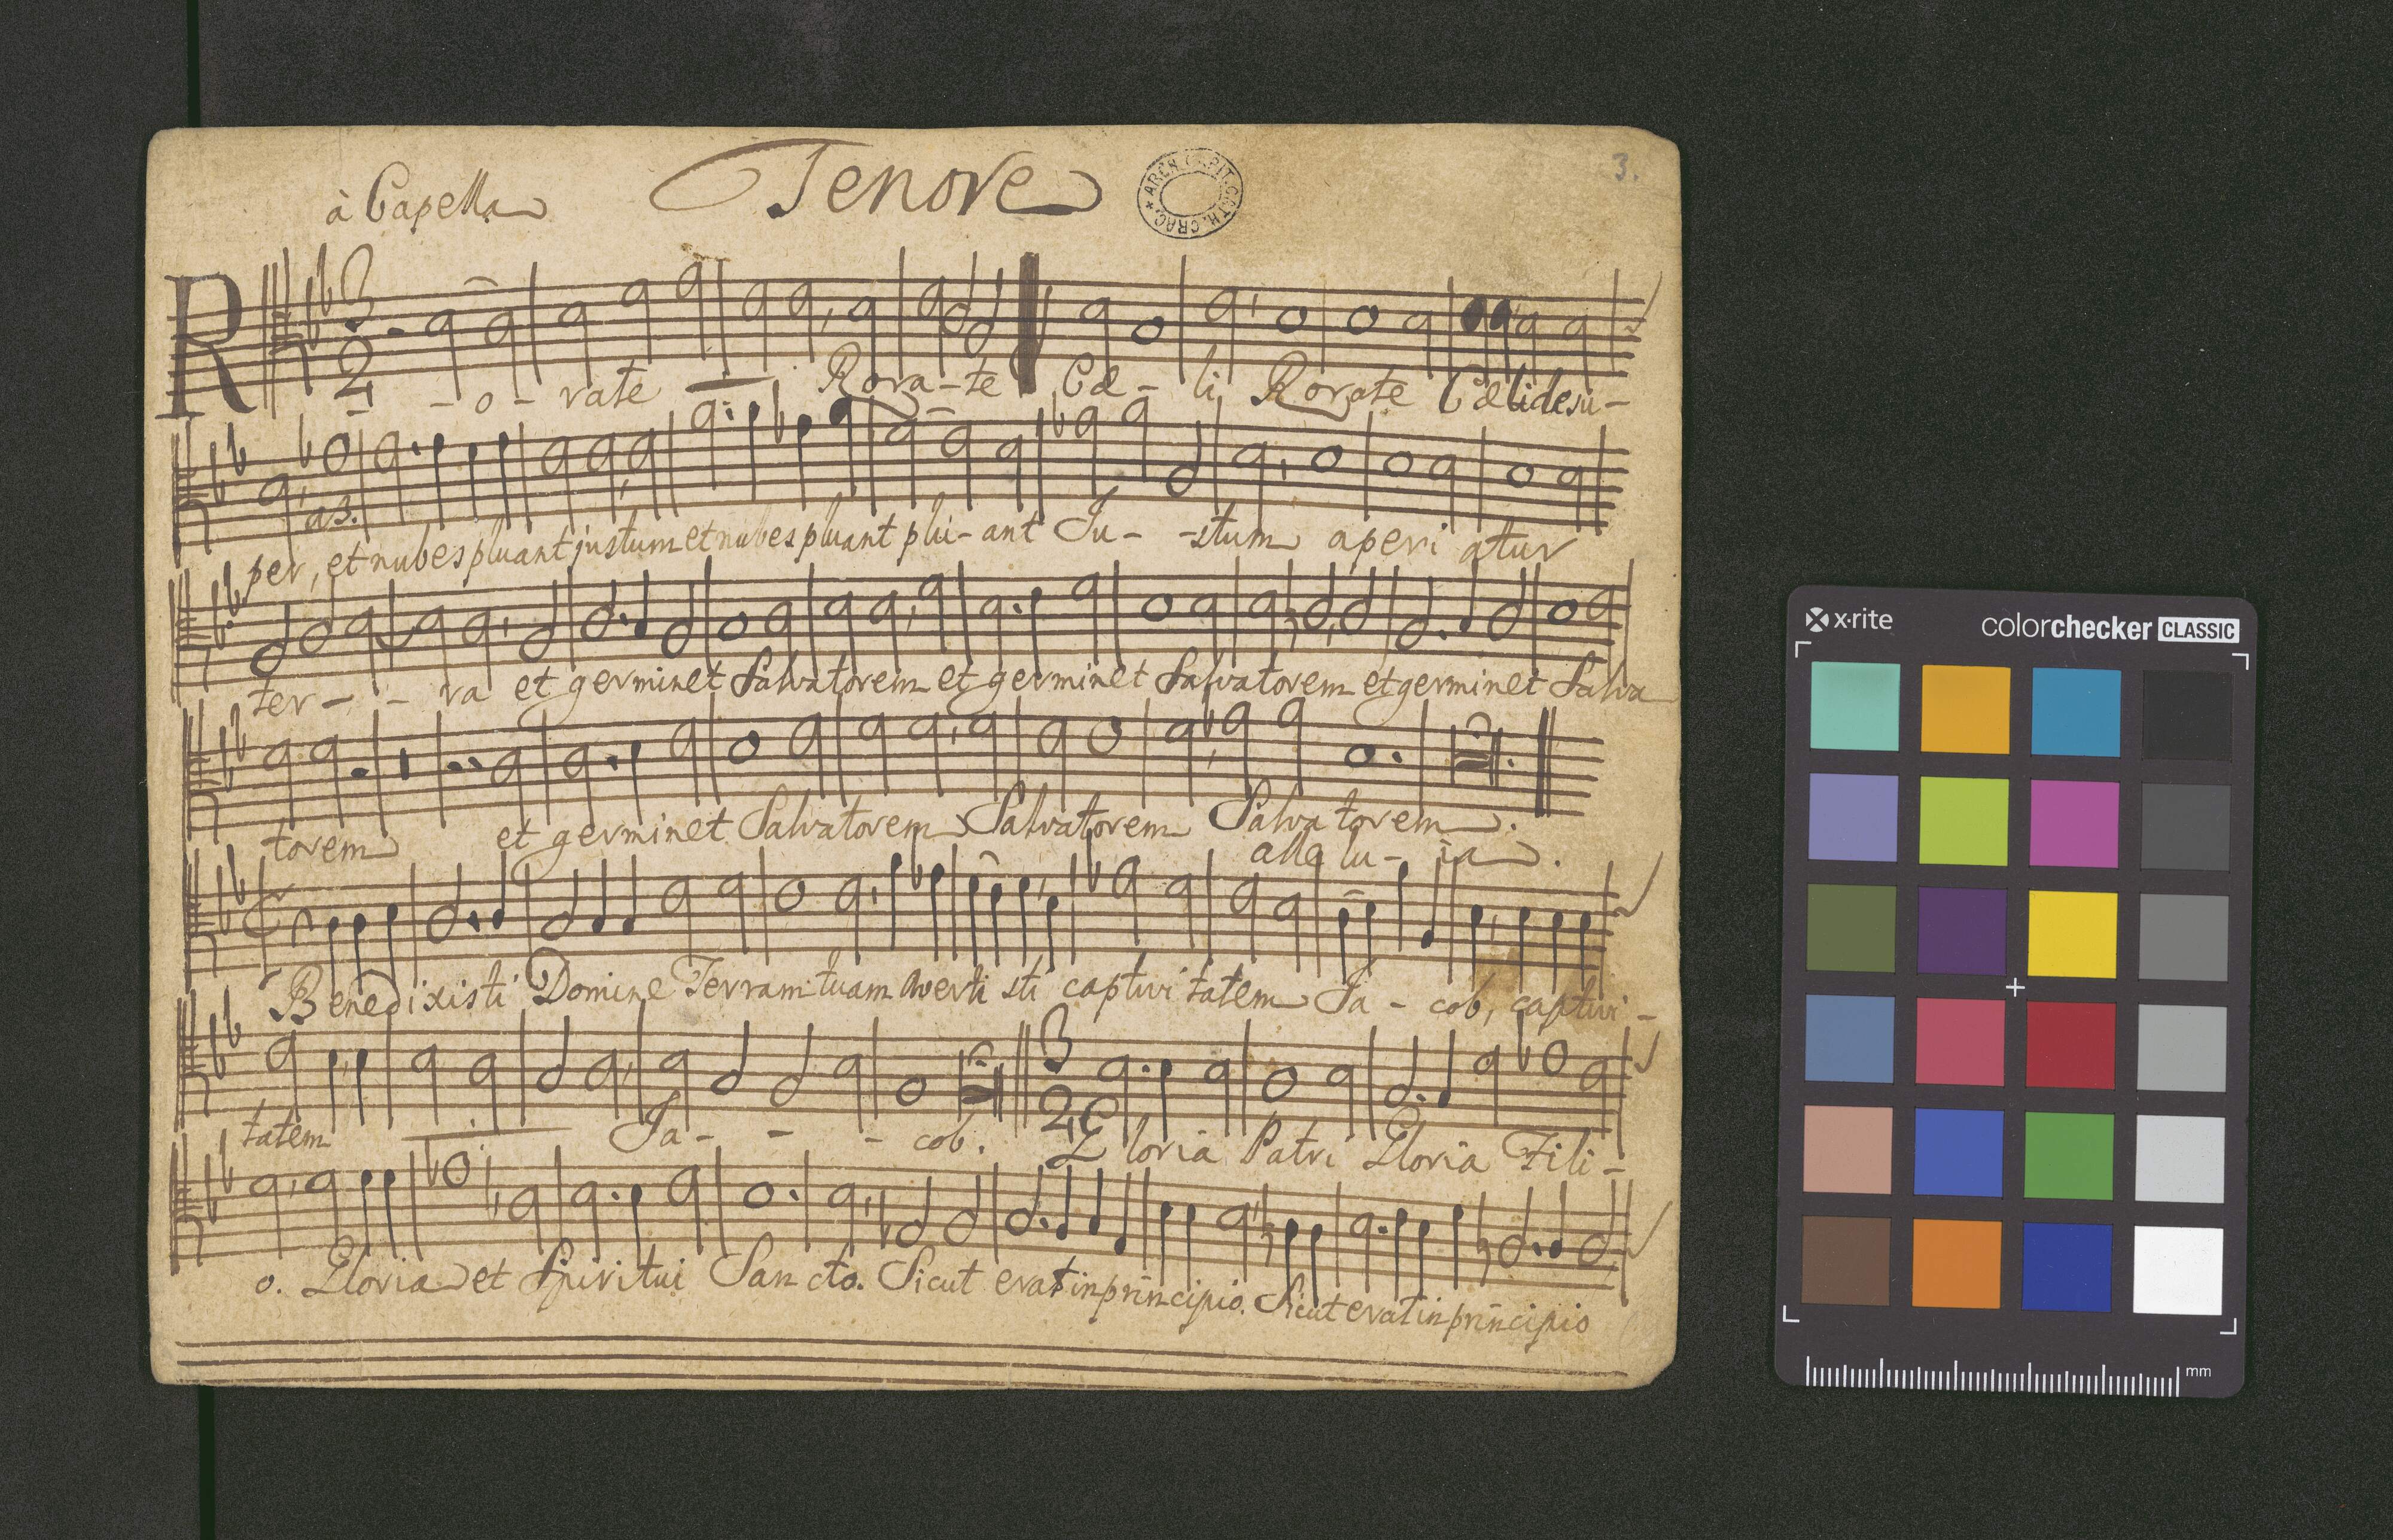 à Capella
Tenore
ARCH. CAPIT. CATH. CRAC.
3.
3
2
R - - o - rate Rora - te Cæ - li Rorate Cæli desu -
a3.
per, et nubes pluant justum et nubes pluant plu - ant Ju - - stum aperi atur
ter - - ra et germinet Salvatorem et germinet Salvatorem et germinet Salva
torem et germinet Salvatorem Salvatorem Salva torem.
alle lu - ia.
Benedixisti Domine Terram tuam Averti sti captivi tatem Ja - cob, captivi -
3
2
tatem Ja - - - cob. Gloria Patri Gloria Fili -
o. Gloria et Spiritui San cto. Sicut erat in principio. Sicut erat in principio
x-rite
colorchecker CLASSIC
mm